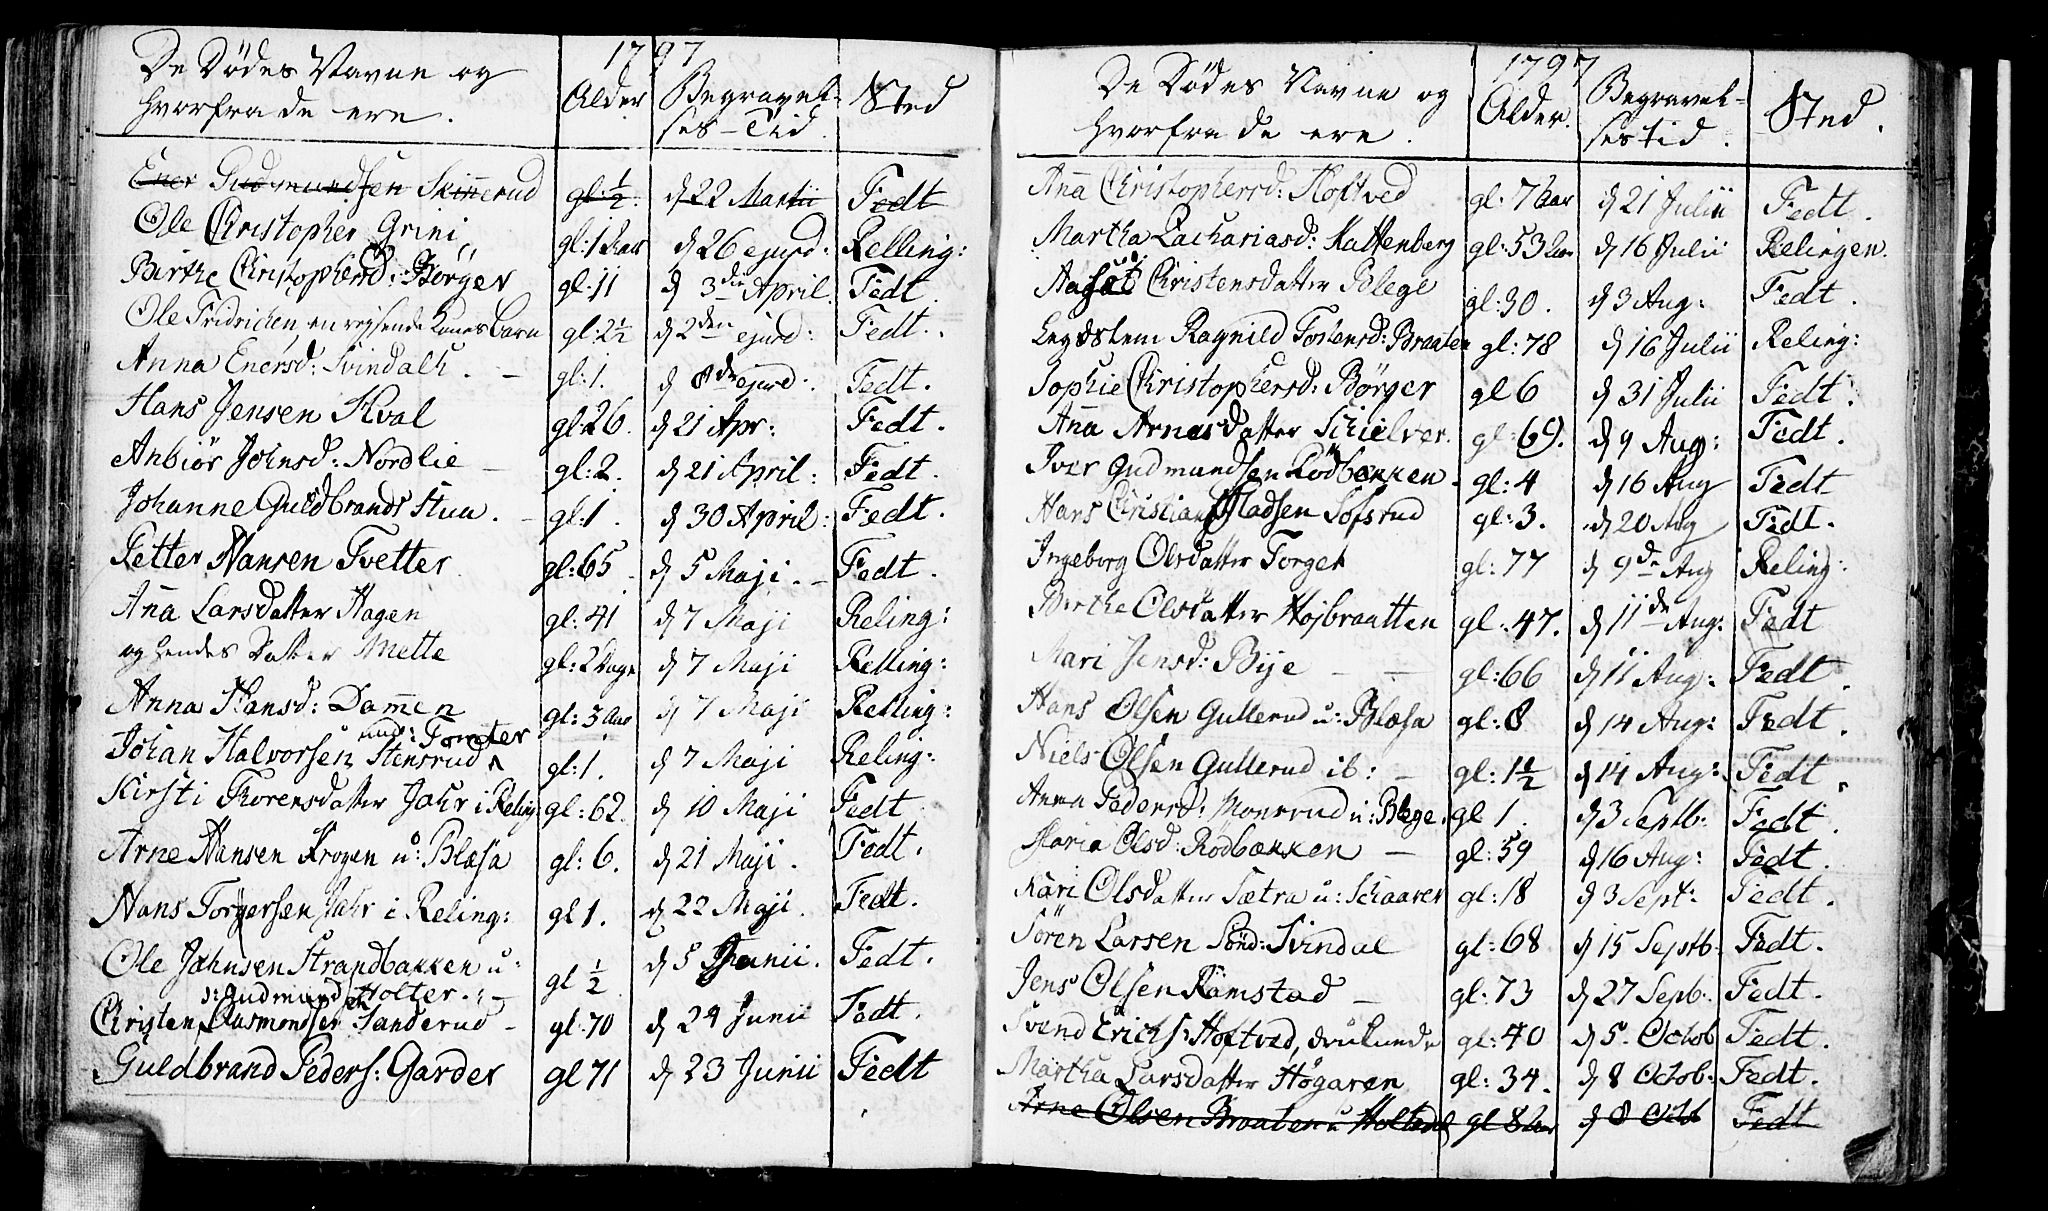 1797
De Dødes Navne og
hvorfra de ere.
Alder
Begravel-
ses-Tid
Sted
Ener Gudmundsen Skinnerud gl: ½. d 22 Martii Fedt
Ole Christopher Grini gl: 1 Aar d 26 ejusd: Relling:
Birthe Christophersd: Börger gl: 11 d 3die April Fedt
Ole Fridrichen en rejsende Konesbarn gl: 2½ d 2den ejusd: Fedt.
Anna Enersd: Svindalh. - gl: 1. d 8de ejusd: Fedt.
Hans Jensen Kval gl: 26. d 21 Apr: Fedt.
Anbiör Johnsd: Nordlie - gl: 2. d 21 April: Fedt.
Johanne Guldbrands Stua. - gl: 1. d 30 April: Fedt.
Petter Hansen Tvetter gl: 65 d 5 Maji. - Fedt.
Aña Larsdatter Hagen gl: 41 d 7 Maji Reling:
og hendes Datter Mette gl: 2 Dage d 7 Maji Relling:
Anna Hansd: Dam̄en gl: 3 Aar d 7 Maji Relling:
und: Fometer
Johan Halvorsen Stensrud gl: 1. d 7 Maji Reling:
Kirsti Thorensdatter Jahr i Reling: gl: 62. d 10 Maji Fedt
Arne Hansen Krogen u: Blæsa gl: 6. d 21 Maji. Fedt.
Hans Torgersen Jahr i Reling: gl 1. d 22 Maji. Fedt.
Ole Jahnsen Strandbakken u: gl ½ d 5 Junii. Fedt.
Holter.
Christen Aasmondsen Sanderud - gl: 70 d 24 Junii Fedt.
Guldbrand Peders: Garder gl 71 d 23 Junii Fedt
1797
De Dødes Navne og
hvorfra de ere.
Alder.
Begravel-
sestid.
Sted.
Aña Christophersd: Hoftved gl: 7 Aar d 21 Julii Fedt.
Martha Zachariasd: Kattenberg gl: 53 Aar d 16 Julii Relingen.
Christensdatter Blege gl: 30. d 3 Aug: Fedt.
Legdslem Ragnild Tostensd: Braaten gl: 78 d 16 Julii Reling:
Sophie Christophersd: Börger gl 6 d 31 Julii Fedt.
Aña Arnesdatter Schielver. gl: 69. d 9 Aug: Fedt.
Iver Gudmundsen Rödbækken. gl: 4 d 16 Aug Fedt
Hans Christian Madsen Sofsrud gl: 3. d 20 Aug Fedt.
Ingeborg Olsdatter Torget gl: 77 d 9de Aug Reling:
Birthe Olsdatter Højbraatten gl: 47. d 11de Aug: Fedt
Mari Jensd: Bije - - gl: 66 d 11 Aug: Fedt.
Hans Olsen Gullerud u: Blæsa gl: 8 d 14 Aug: Fedt.
Niels Olsen Gullerud ib: - gl: 1½ d 14 Aug: Fedt.
Anna Pedersd: Monsrud u: Blege. gl 1. d 3 Septb: Fedt.
Maria Olsd: Rodbækken - gl: 59 d 16 Aug: Fedt.
Kari Olsdatter Sætra u: Schaarer gl: 18 d 3 Sept: Fedt.
Sören Larsen Sönd: Svindal gl: 68 d 15 Septb: Fedt.
Jens Olsen Ramstad - gl: 73 d 27 Sepb: Fedt.
Svend Erichs: Hoftved, druknede gl: 40 d 5. Octob Fedt.
Martha Larsdatter Högaren gl: 34. d 8 Octob: Fedt.
Arne Olsen Braaten u Holtend gl 8 Aar d 8 Octb Fedt